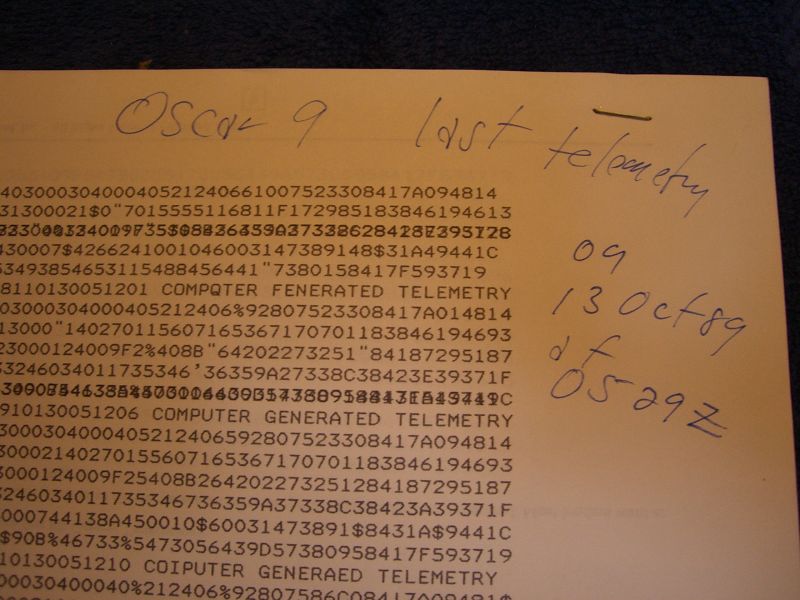 Oscar 9 last telemetry
09
13 Oct 89
at
0529Z
403000304000405212406610075233084 17A094814
31300021$0"7015555116811F172985183846194613
430007$42662410010460031473891 48$31A49441C
534938546531154884564 41"7380158417F593719
8110130051201 COMPQTER FENERATED TELEMETRY
030003040004052124 06%92807523308417A014814
13000"140270115607165367170701183846194693
23000124009F2%408B"64202273251"84187295187
3324603401173534 6'36359A27338C38423E39371F
910130051206 COMPUTER GENERATED TELEMETRY
3000304000405212406592807523308417A094814
3000214027015560716536717070118384 6194693
3000124009F25408B26420227325128418729 5187
3246034011735346736359A37338C38423A39371F
000744138A450010$60031473891$8431A$9441C
$908%46733%5473056439D57380958417F593719
10130051210 COIPUTER GENERAED TELEMETRY